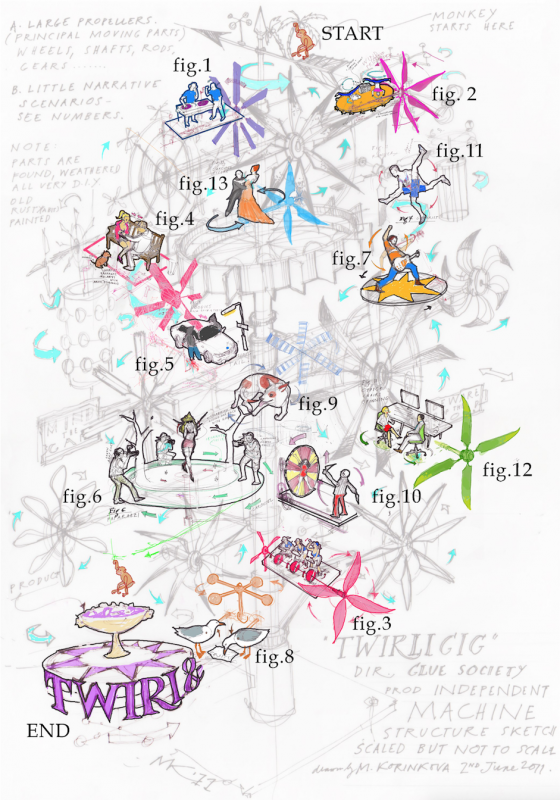 A. LARGE PROPELLERS.
(PRINCIPAL MOVING PARTS)
WHEELS, SHAFTS, RODS,
GEARS ........
B. LITTLE NARRATIVE
SCENARIOS -
SEE NUMBERS.
NOTE:
PARTS ARE
FOUND, WEATHERED
ALL VERY D.I.Y
OLD
PAINTED
START
MONKEY
STARTS HERE
fig.1
fig. 2
fig.11
fig.13
fig.4
fig.7
fig.5
fig.9
fig.12
fig.6
fig.10
fig.3
fig.8
PRODUCT
TWIRL&
END
"TWIRLIGIG"
DIR. GLUE SOCIETY
PROD INDEPENDENT
MACHINE
STRUCTURE SKETCH
SCALED BUT NOT TO SCALE
drawn by M. KORINKOVA 2ND June 2011.